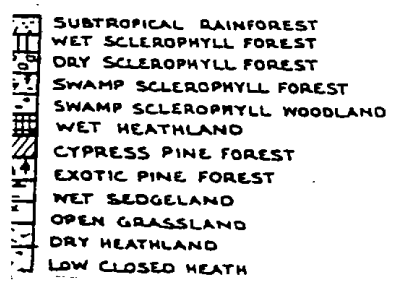 SUBTROPICAL RAINFOREST
WET SCLEROPHYLL FOREST
DRY SCLEROPHYLL FOREST
SWAMP SCLEROPHYLL FOREST
SWAMP SCLEROPHYLL WOODLAND
WET HEATHLAND
CYPRESS PINE FOREST
EXOTIC PINE FOREST
WET SEDGELAND
OPEN GRASSLAND
DRY HEATHLAND
LOW CLOSED HEATH